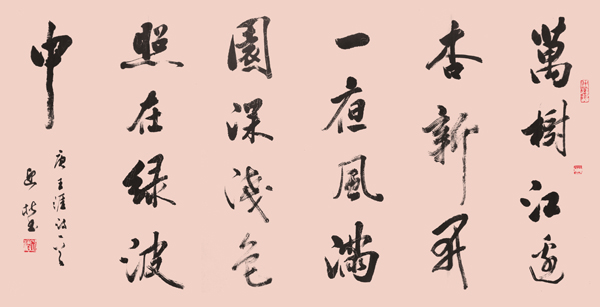 萬樹江邊
杏新開
一夜風滿
園深淺色
照在綠波
中
唐王涯詩一首